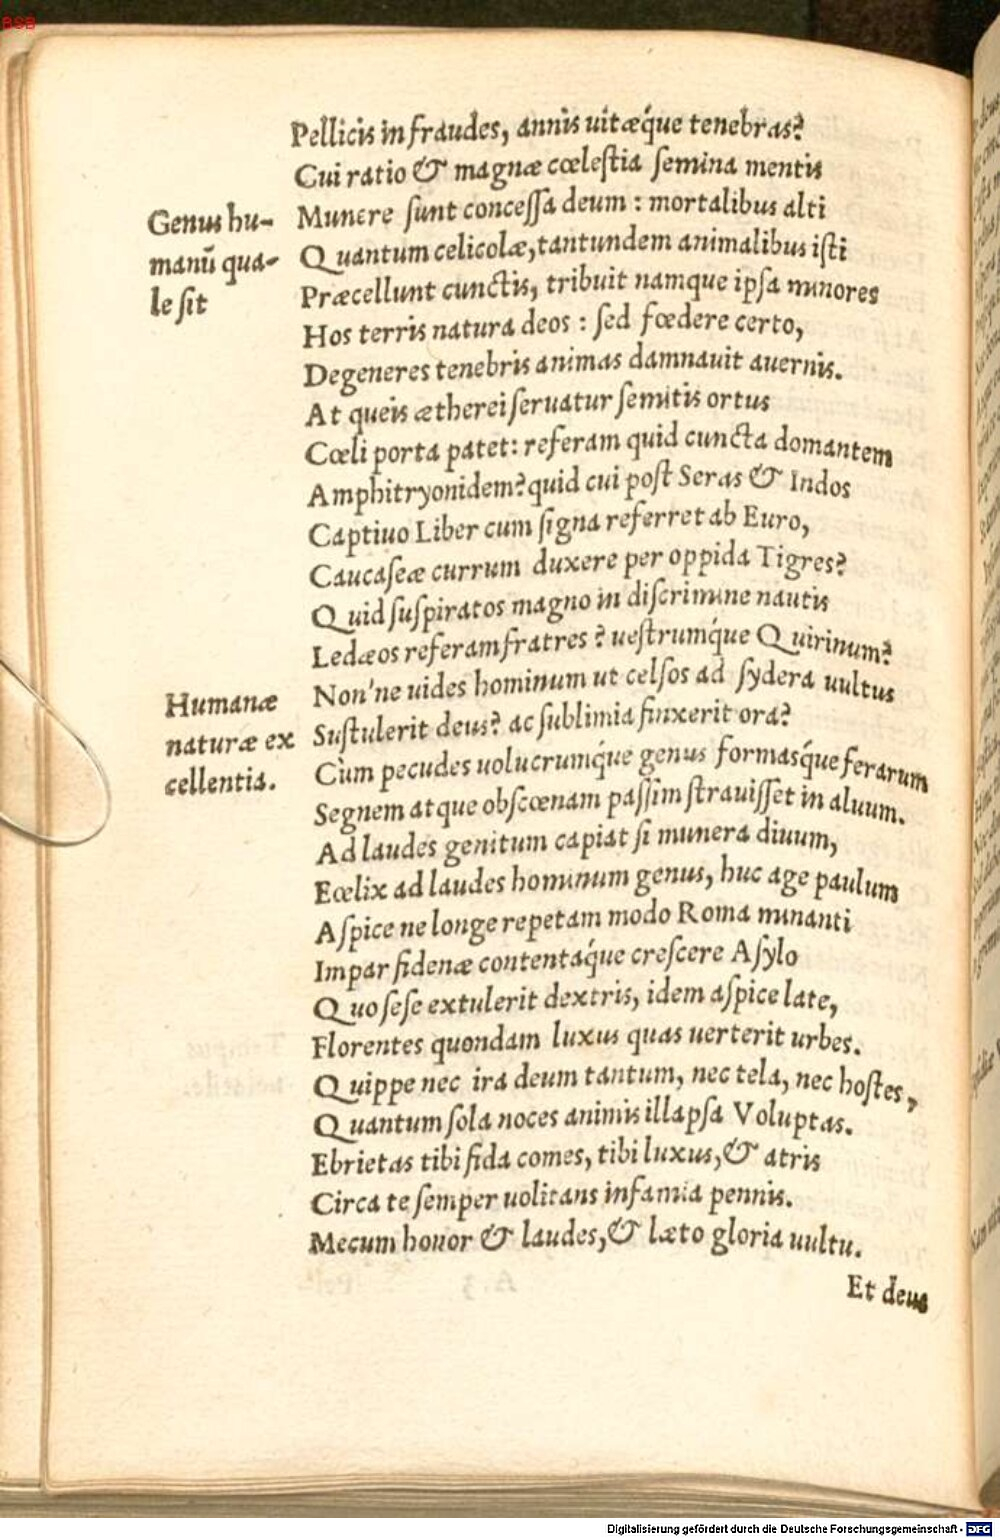 BSB
Pellicis in fraudes, annis uitæq́ue tenebras?
Cui ratio & magnæ cœlestia semina mentis
Genus hu-
manū qua-
le sit
Munere sunt concessa deum : mortalibus alti
Quantum celicolæ, tantundem animalibus isti
Præcellunt cunctis, tribuit namque ipsa minores
Hos terris natura deos : sed fœdere certo,
Degeneres tenebris animas damnauit auernis.
At queis ætherei seruatur semitis ortus
Cœli porta patet: referam quid cuncta domantem
Amphitryonidem? quid cui post Seras & Indos
Captiuo Liber cum signa referret ab Euro,
Caucaseæ currum duxere per oppida Tigres?
Quid suspiratos magno in discrimine nautis
Ledæos referam fratres ? uestrumq́ue Quirinum?
Non'ne uides hominum ut celsos ad sydera uultus
Humanæ
naturæ ex
cellentia.
Sustulerit deus? ac sublimia finxerit ora?
Cùm pecudes uolucrumq́ue genus formasq́ue ferarum
Segnem atque obscœnam passim strauisset in aluum.
Ad laudes genitum capiat si munera diuum,
Fœlix ad laudes hominum genus, huc age paulum
Aspice ne longe repetam modo Roma minanti
Impar fidenæ contentaq́ue crescere Asylo
Quo sese extulerit dextris, idem aspice late,
Florentes quondam luxus quas uerterit urbes.
Quippe nec ira deum tantum, nec tela, nec hostes,
Quantum sola noces animis illapsa Voluptas.
Ebrietas tibi fida comes, tibi luxus, & atris
Circa te semper uolitans infamia pennis.
Mecum honor & laudes, & læto gloria uultu.
Et deus
Digitalisierung gefördert durch die Deutsche Forschungsgemeinschaft - DFG